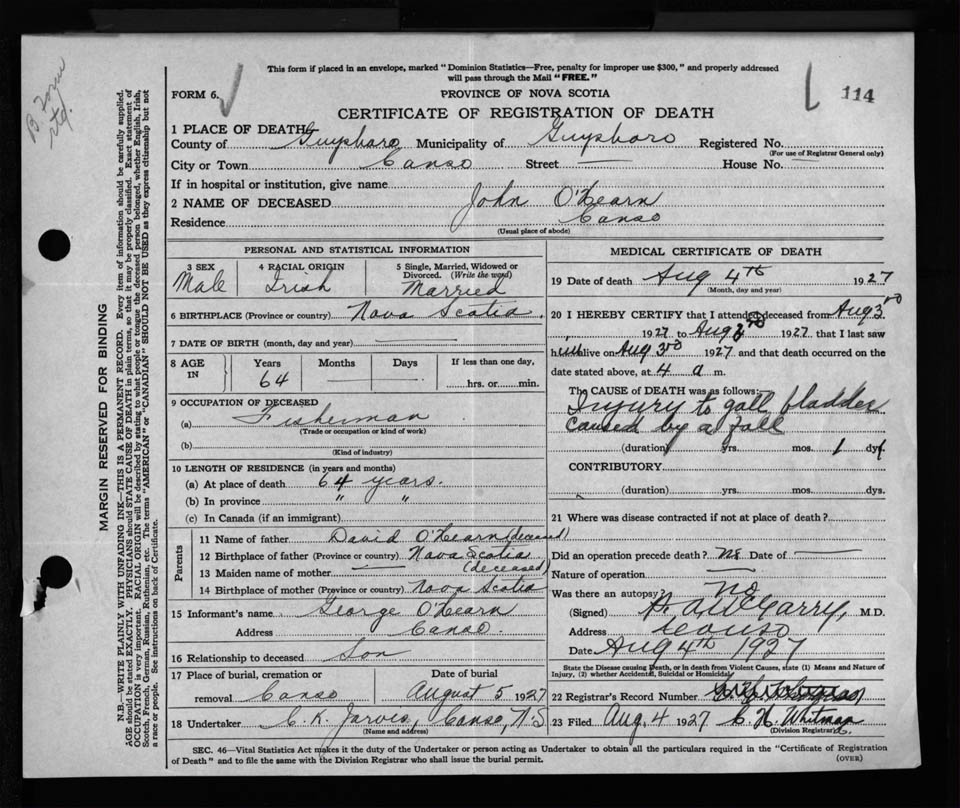 This form if placed in an envelope, marked "Dominion Statistics—Free, penalty for improper use $300," and properly addressed
will pass through the Mail "FREE."
FORM 6.
PROVINCE OF NOVA SCOTIA
114
CERTIFICATE OF REGISTRATION OF DEATH
1 PLACE OF DEATH
County of Guysboro Municipality of Guysboro Registered No.
(For use of Registrar General only)
City or Town Canso Street — House No.
If in hospital or institution, give name
2 NAME OF DECEASED John O'Hearn
Residence Canso
(Usual place of abode)
PERSONAL AND STATISTICAL INFORMATION
3 SEX Male
4 RACIAL ORIGIN Irish
5 Single, Married, Widowed or Divorced. (Write the word) Married
6 BIRTHPLACE (Province or country) Nova Scotia.
7 DATE OF BIRTH (month, day and year) —
8 AGE IN Years 64 Months — Days If less than one day, hrs. or min.
9 OCCUPATION OF DECEASED
(a) Fisherman
(Trade or occupation or kind of work)
(b)
(Kind of industry)
10 LENGTH OF RESIDENCE (in years and months)
(a) At place of death 64 years.
(b) In province " "
(c) In Canada (if an immigrant)
Parents
11 Name of father David O'Hearn (deceased)
12 Birthplace of father (Province or country) Nova Scotia
13 Maiden name of mother — (deceased)
14 Birthplace of mother (Province or country) Nova Scotia
15 Informant's name George O'Hearn
Address Canso.
16 Relationship to deceased Son
17 Place of burial, cremation or removal Canso
Date of burial August 5 1927
18 Undertaker C. K. Jarvis, Canso, N.S
(Name and address)
MEDICAL CERTIFICATE OF DEATH
19 Date of death Aug 4th 1927
(Month, day and year)
20 I HEREBY CERTIFY that I attended deceased from Aug 3rd
1927 to Aug 3rd 1927 that I last saw
him alive on Aug 3rd 1927 and that death occurred on the
date stated above, at 4 a m.
The CAUSE OF DEATH was as follows:
Injury to gall bladder
caused by a fall
(duration) yrs. mos. 1 dys.
CONTRIBUTORY
(duration) yrs. mos. dys.
21 Where was disease contracted if not at place of death?
Did an operation precede death? No Date of —
Nature of operation —
Was there an autopsy? no
(Signed) M.D.
Address Canso
Date Aug 4th 1927
State the Disease causing Death, or in death from Violent Causes, state (1) Means and Nature of
Injury, (2) whether Accidental, Suicidal or Homicidal
22 Registrar's Record Number
23 Filed Aug. 4 1927 C. H. Whitman
(Division Registrar)
SEC. 46—Vital Statistics Act makes it the duty of the Undertaker or person acting as Undertaker to obtain all the particulars required in the "Certificate of Registration
of Death" and to file the same with the Division Registrar who shall issue the burial permit.
(OVER)
MARGIN RESERVED FOR BINDING
N.B.—WRITE PLAINLY WITH UNFADING INK—THIS IS A PERMANENT RECORD. Every item of information should be carefully supplied.
AGE should be stated EXACTLY. PHYSICIANS should STATE CAUSE OF DEATH in plain terms, so that it may be properly classified. Exact statement of
OCCUPATION is very important. RACIAL ORIGIN will be described by stating to what people or tongue the deceased person belonged, whether English, Irish,
Scotch, French, German, Russian, Ruthenian, etc. The terms "AMERICAN" or "CANADIAN" SHOULD NOT BE USED as they express citizenship but not
a race or people. See instructions on back of Certificate.